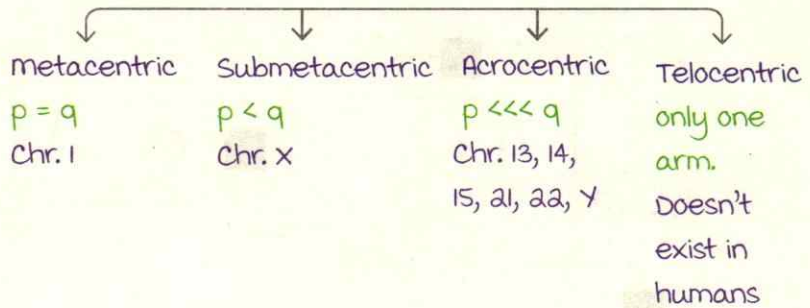 metacentric
p = q
Chr. 1
Submetacentric
p < q
Chr. X
Acrocentric
p <<< q
Chr. 13, 14,
15, 21, 22, Y
Telocentric
only one
arm.
Doesn't
exist in
humans